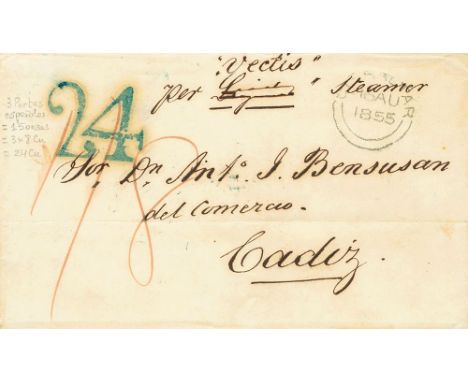 "Vectis"
per " Steamer
1855
24
1/8
3 Portes
españoles
= 1.5 onzas
= 3 x 8 Cu
= 24 Cu
Sor. Dn. Anto. J. Bensusan
del Comercio.
Cadiz.